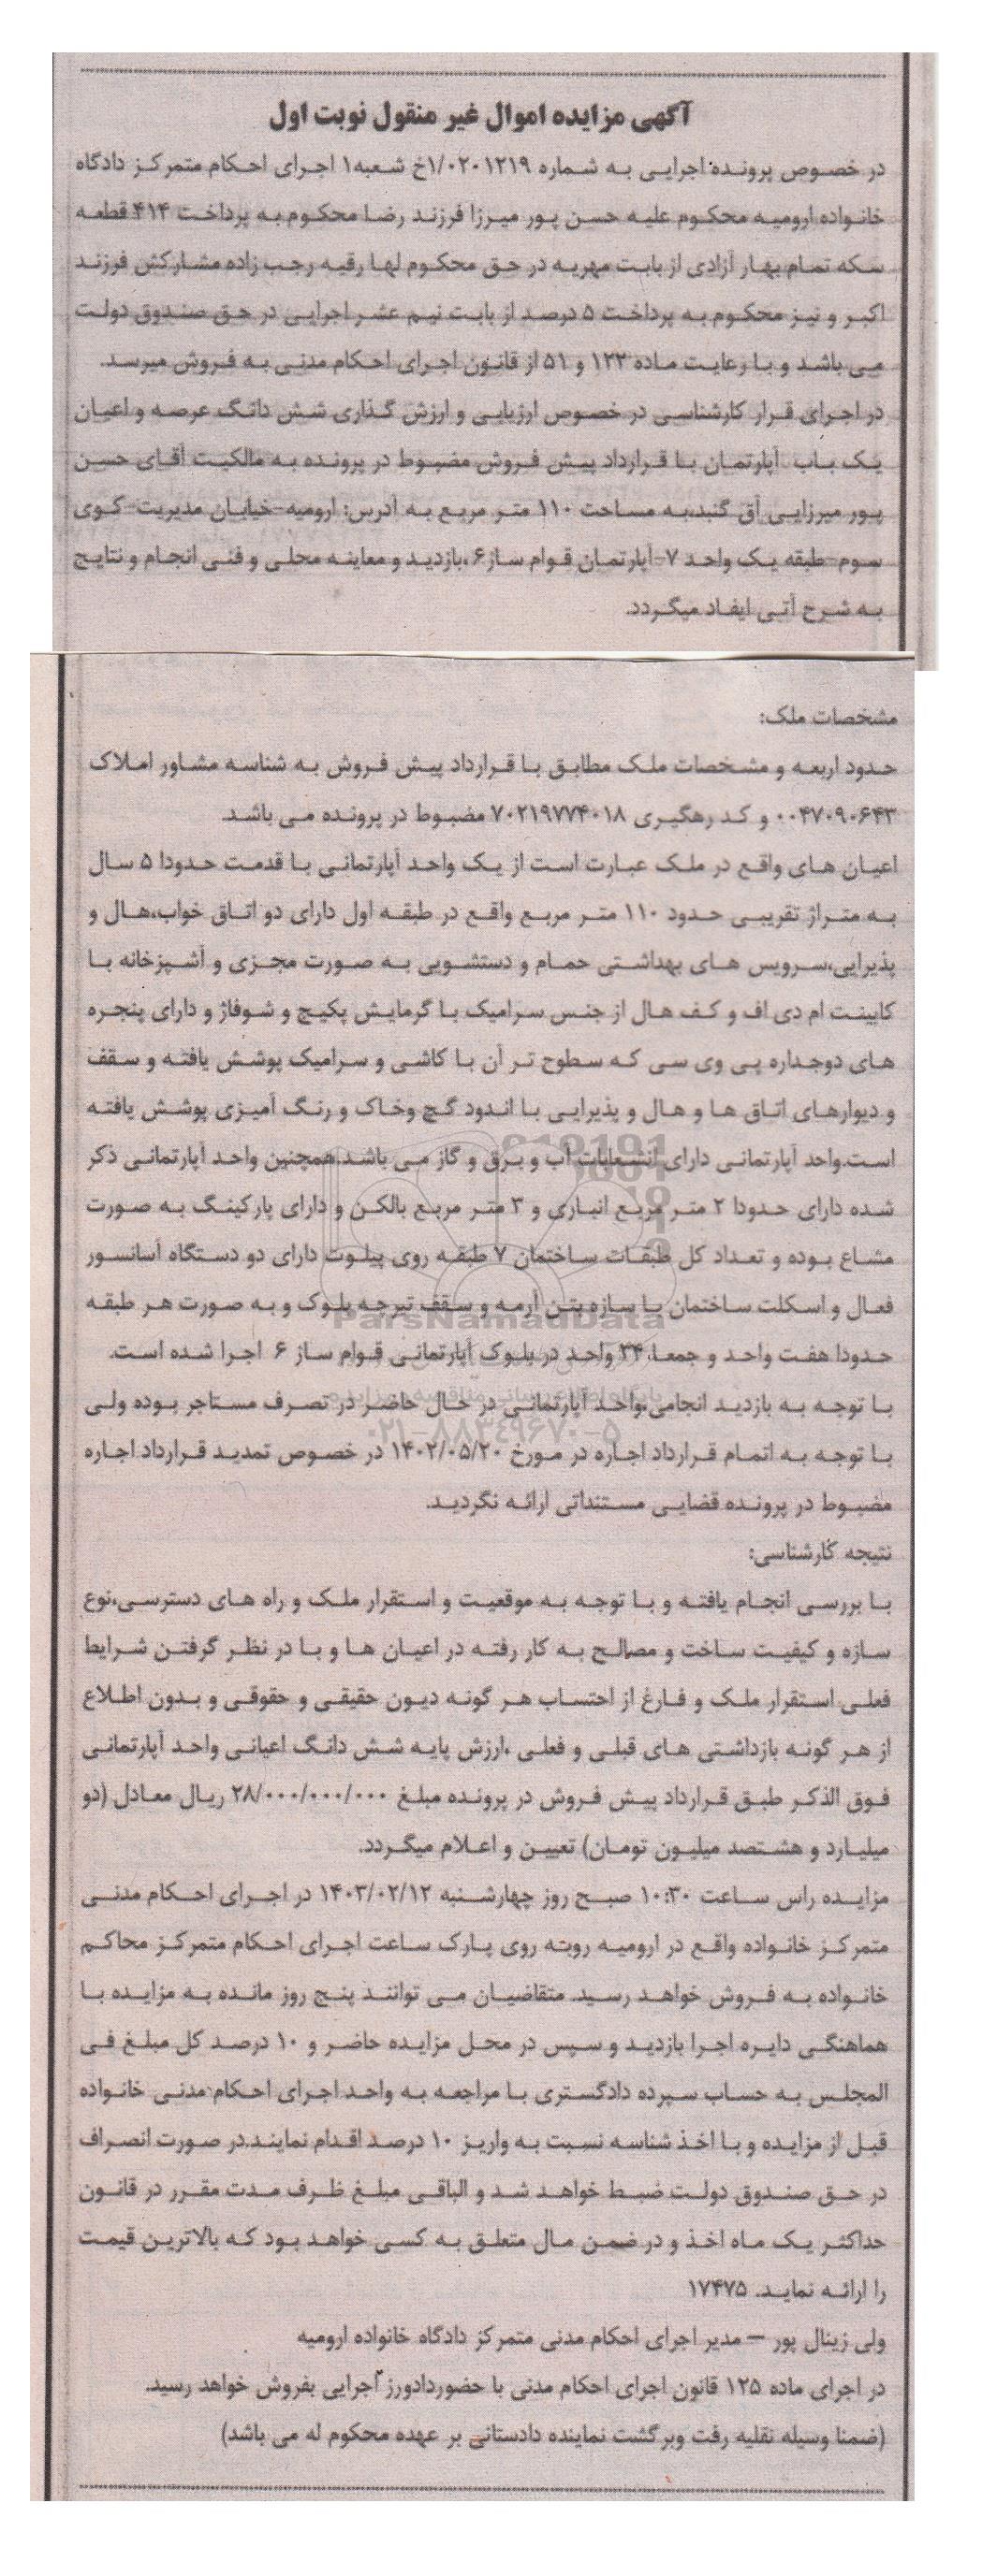 آگهی مزایده اموال غیر منقول نوبت اول
در خصوص پرونده اجرایی به شماره ۱/۰۲۰۱۲۱۹خ شعبه۱ اجرای احکام متمرکز دادگاه
خانواده ارومیه محکوم علیه حسن پور میرزا فرزند رضا محکوم به پرداخت ۴۱۴ قطعه
سکه تمام بهار آزادی از بابت مهریه در حق محکوم لها رقیه رجب زاده مشارکش فرزند
اکبر و نیز محکوم به پرداخت ۵ درصد از بابت نیم عشر اجرایی در حق صندوق دولت
می باشد و با رعایت ماده ۱۲۲ و ۵۱ از قانون اجرای احکام مدنی به فروش میرسد.
در اجرای قرار کارشناسی در خصوص ارزیابی و ارزش گذاری شش دانگ عرصه و اعیان
یک باب آپارتمان با قرارداد پیش فروش مضبوط در پرونده به مالکیت آقای حسن
پور میرزایی آق گنبد،به مساحت ۱۱۰ متر مربع به آدرس: ارومیه-خیابان مدیریت-کوی
سوم-طبقه یک واحد ۷-آپارتمان قوام ساز۶ ،بازدید و معاینه محلی و فنی انجام و نتایج
به شرح آتی ایفاد میگردد.
مشخصات ملک:
حدود اربعه و مشخصات ملک مطابق با قرارداد پیش فروش به شناسه مشاور املاک
۰۰۴۷۰۹۰۶۴۳ و کد رهگیری ۷۰۲۱۹۷۷۴۰۱۸ مضبوط در پرونده می باشد.
اعیان های واقع در ملک عبارت است از یک واحد آپارتمانی با قدمت حدودا ۵ سال
به متراژ تقریبی حدود ۱۱۰ متر مربع واقع در طبقه اول دارای دو اتاق خواب،هال و
پذیرایی،سرویس های بهداشتی حمام و دستشویی به صورت مجزی و آشپزخانه با
کابینت ام دی اف و کف هال از جنس سرامیک با گرمایش پکیج و شوفاژ و دارای پنجره
های دوجداره پی وی سی که سطوح تر آن با کاشی و سرامیک پوشش یافته و سقف
و دیوارهای اتاق ها و هال و پذیرایی با اندود گچ وخاک و رنگ آمیزی پوشش یافته
است.واحد آپارتمانی دارای انشعابات آب و برق و گاز می باشد.همچنین واحد آپارتمانی ذکر
شده دارای حدودا ۲ متر مربع انباری و ۳ متر مربع بالکن و دارای پارکینگ به صورت
مشاع بوده و تعداد کل طبقات ساختمان ۷ طبقه روی پیلوت دارای دو دستگاه آسانسور
فعال و اسکلت ساختمان با سازه بتن آرمه و سقف تیرچه بلوک و به صورت هر طبقه
ParsNamadData
حدودا هفت واحد و جمعا ۳۴ واحد در بلوک آپارتمانی قوام ساز ۶ اجرا شده است.
پایگاه اطلاع رسانی مناقصه و مزایده
با توجه به بازدید انجامی،واحد آپارتمانی در حال حاضر در تصرف مستاجر بوده ولی
۰۲۱-۸۸۳۴۹۶۷۰-۵
با توجه به اتمام قرارداد اجاره در مورخ ۱۴۰۲/۰۵/۲۰ در خصوص تمدید قرارداد اجاره
مضبوط در پرونده قضایی مستنداتی ارائه نگردید.
نتیجه کارشناسی:
با بررسی انجام یافته و با توجه به موقعیت و استقرار ملک و راه های دسترسی،نوع
سازه و کیفیت ساخت و مصالح به کار رفته در اعیان ها و با در نظر گرفتن شرایط
فعلی استقرار ملک و فارغ از احتساب هر گونه دیون حقیقی و حقوقی و بدون اطلاع
از هر گونه بازداشتی های قبلی و فعلی ،ارزش پایه شش دانگ اعیانی واحد آپارتمانی
فوق الذکر طبق قرارداد پیش فروش در پرونده مبلغ ۲۸/۰۰۰/۰۰۰/۰۰۰ ریال معادل (دو
میلیارد و هشتصد میلیون تومان) تعیین و اعلام میگردد.
مزایده راس ساعت ۱۰:۳۰ صبح روز چهارشنبه ۱۴۰۳/۰۲/۱۲ در اجرای احکام مدنی
متمرکز خانواده واقع در ارومیه روبه روی پارک ساعت اجرای احکام متمرکز محاکم
خانواده به فروش خواهد رسید. متقاضیان می توانند پنج روز مانده به مزایده با
هماهنگی دایره اجرا بازدید و سپس در محل مزایده حاضر و ۱۰ درصد کل مبلغ فی
المجلس به حساب سپرده دادگستری با مراجعه به واحد اجرای احکام مدنی خانواده
قبل از مزایده و با اخذ شناسه نسبت به واریز ۱۰ درصد اقدام نمایند.در صورت انصراف
در حق صندوق دولت ضبط خواهد شد و الباقی مبلغ ظرف مدت مقرر در قانون
حداکثر یک ماه اخذ و در ضمن مال متعلق به کسی خواهد بود که بالاترین قیمت
را ارائه نماید. ۱۷۴۷۵
ولی زینال پور – مدیر اجرای احکام مدنی متمرکز دادگاه خانواده ارومیه
در اجرای ماده ۱۲۵ قانون اجرای احکام مدنی با حضوردادورز اجرایی بفروش خواهد رسید.
(ضمنا وسیله نقلیه رفت وبرگشت نماینده دادستانی بر عهده محکوم له می باشد)